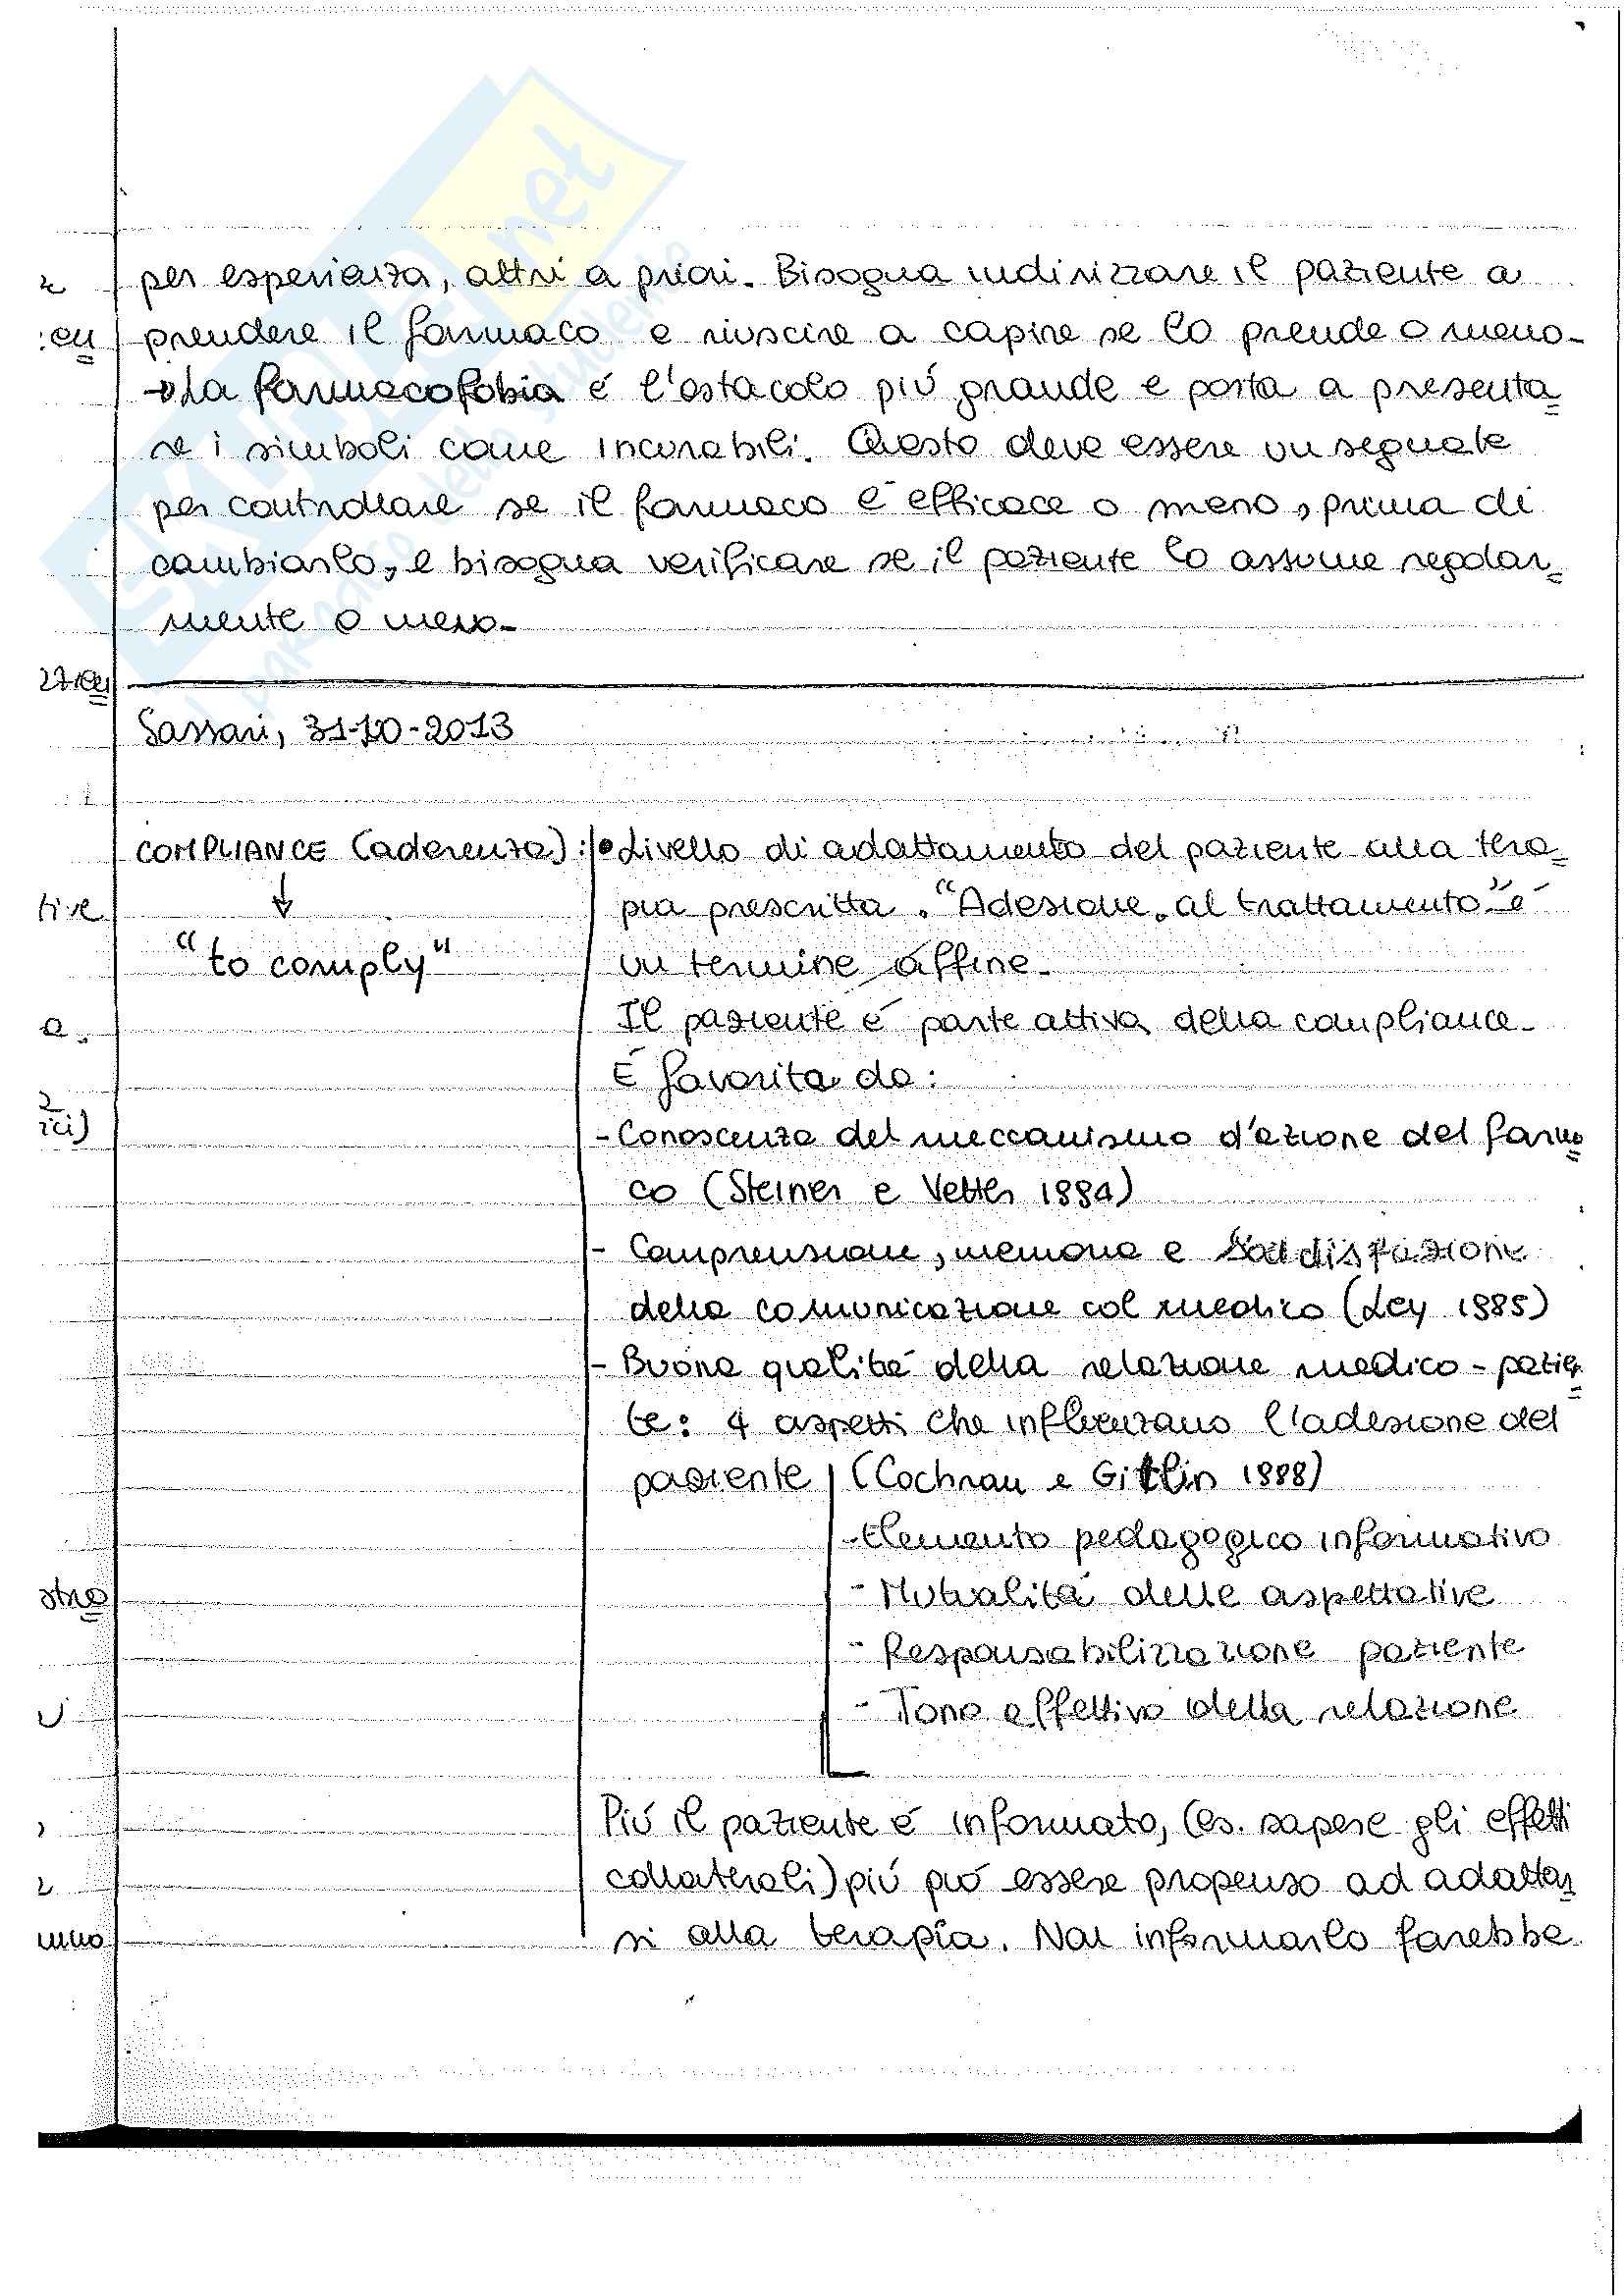 per esperienza, altri a priori. Bisogna indirizzare il paziente a
prendere il farmaco e riuscire a capire se lo prende o meno.
→ La farmacofobia é l'ostacolo piú grande e porta a presenta=
re i simboli come incurabili. Questo deve essere un segnale
per controllare se il farmaco é efficace o meno, prima di
cambiarlo, e bisogna verificare se il paziente lo assume regolar=
mente o meno.
Sassari, 31-10-2013
COMPLIANCE (aderenza): • Livello di adattamento del paziente alla tera=
↓ pia prescritta. "Adesione al trattamento" é
"to comply" un termine affine.
Il paziente é parte attiva della compliance.
É favorita da:
- Conoscenza del meccanismo d'azione del farma=
co (Steiner e Vetter 1994)
- Comprensione, memoria e soddisfazione
della comunicazione col medico (Ley 1985)
- Buona qualitá della relazione medico-pazien=
te: 4 aspetti che influenzano l'adesione del
paziente (Cochran e Gitlin 1988)
- Elemento pedagogico informativo
- Mutualitá delle aspettative
- Responsabilizzazione paziente
- Tono affettivo della relazione
Piú il paziente é informato, (es. sapere gli effetti
collaterali) piú puó essere propenso ad adattar=
si alla terapia. Non informarlo farebbe